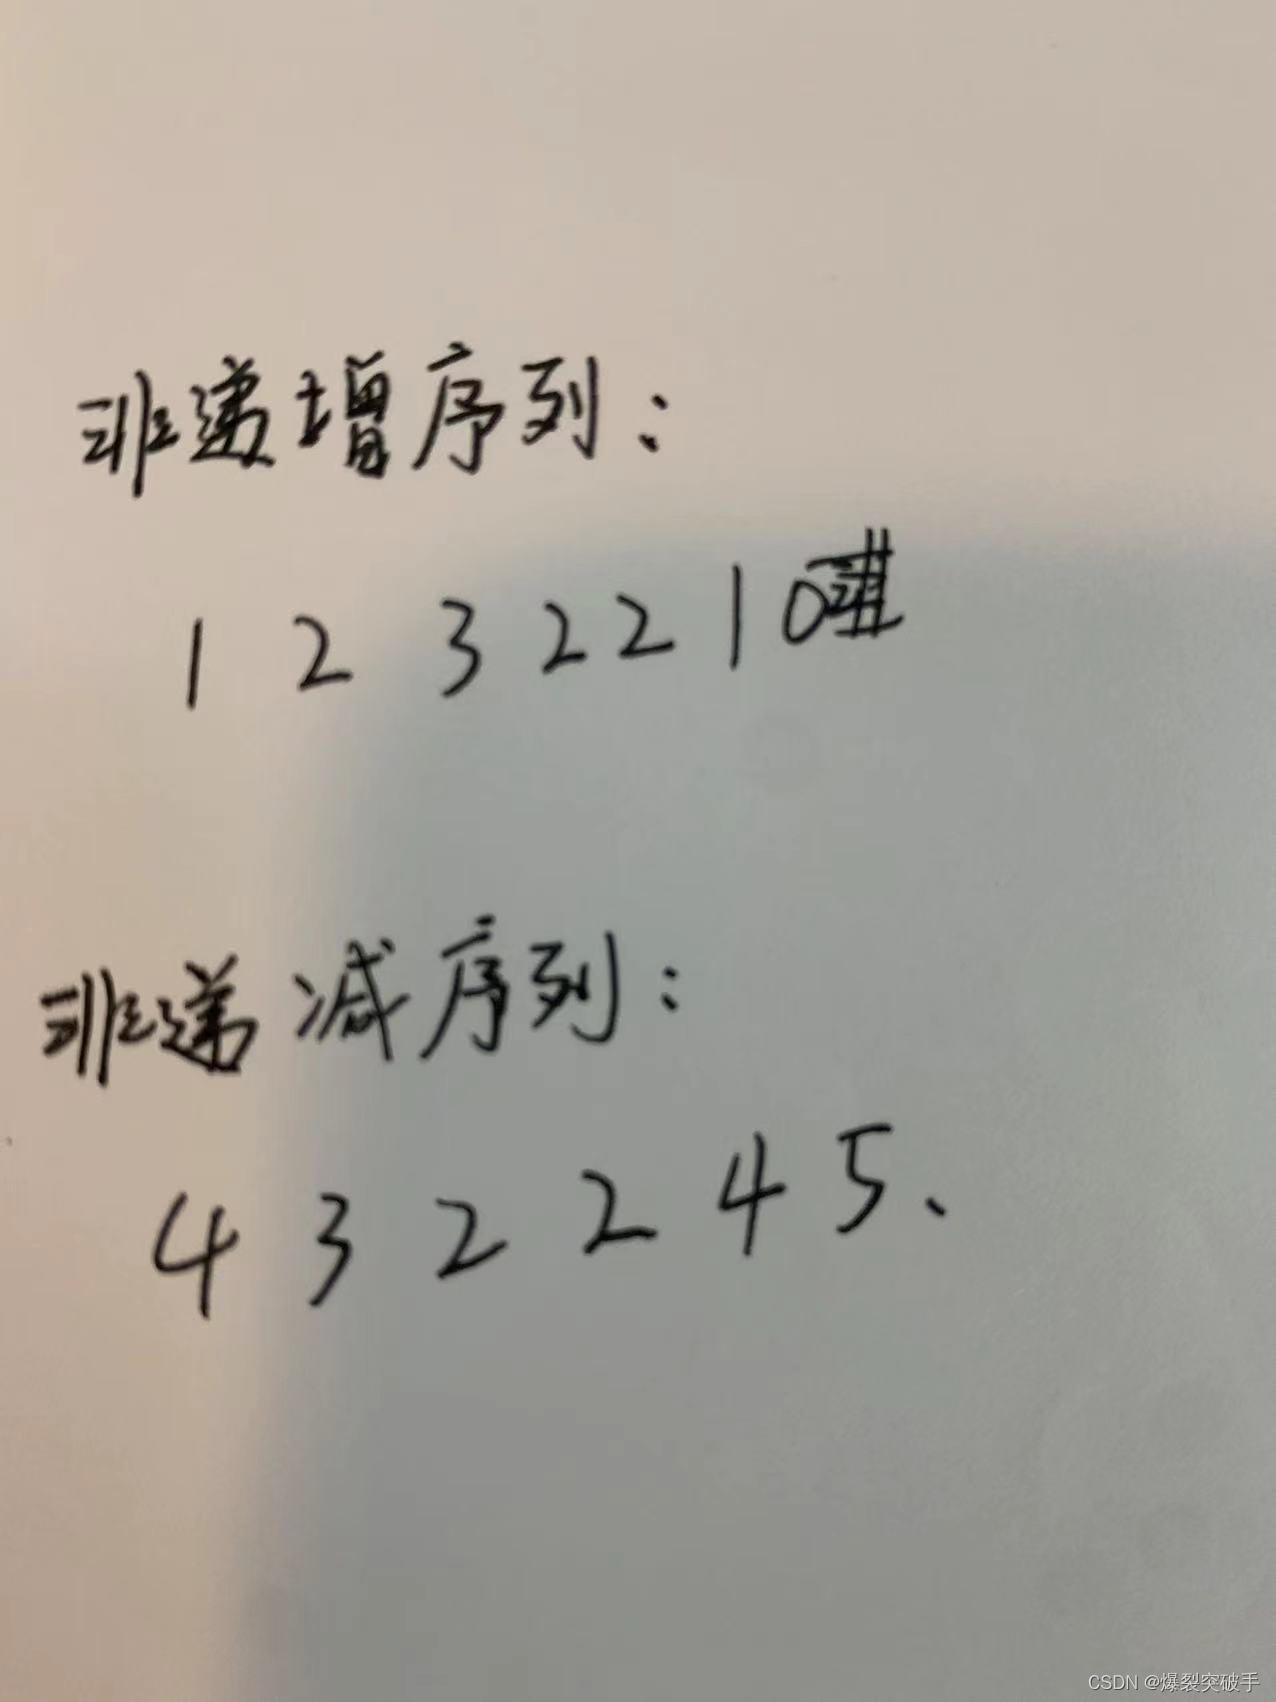 非递增序列：
1 2 3 2 2 1 0
非递减序列：
4 3 2 2 4 5、
CSDN @爆裂突破手